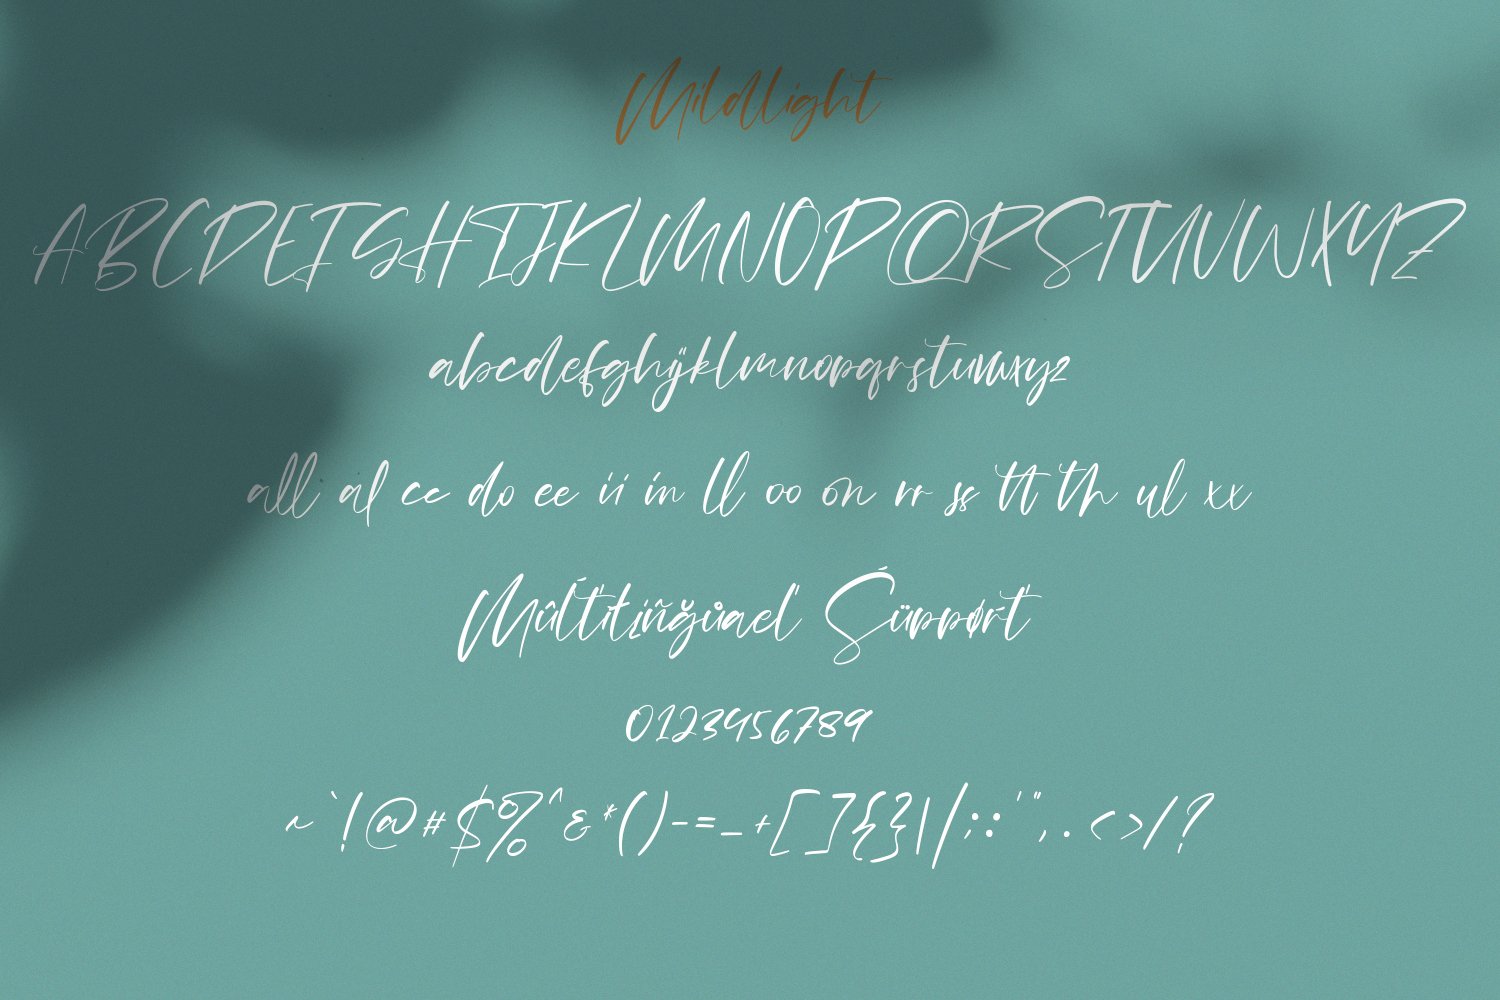 Mildlight
ABCDEFGHIJKLMNOPQRSTUVWXYZ
abcdefghijklmnopqrstuvwxyz
all al cc do ee ii in ll oo on rr ss tt th ul xx
0123456789
~`!@#$%^&*()-=_+[]{}|/;:'",.<>/?